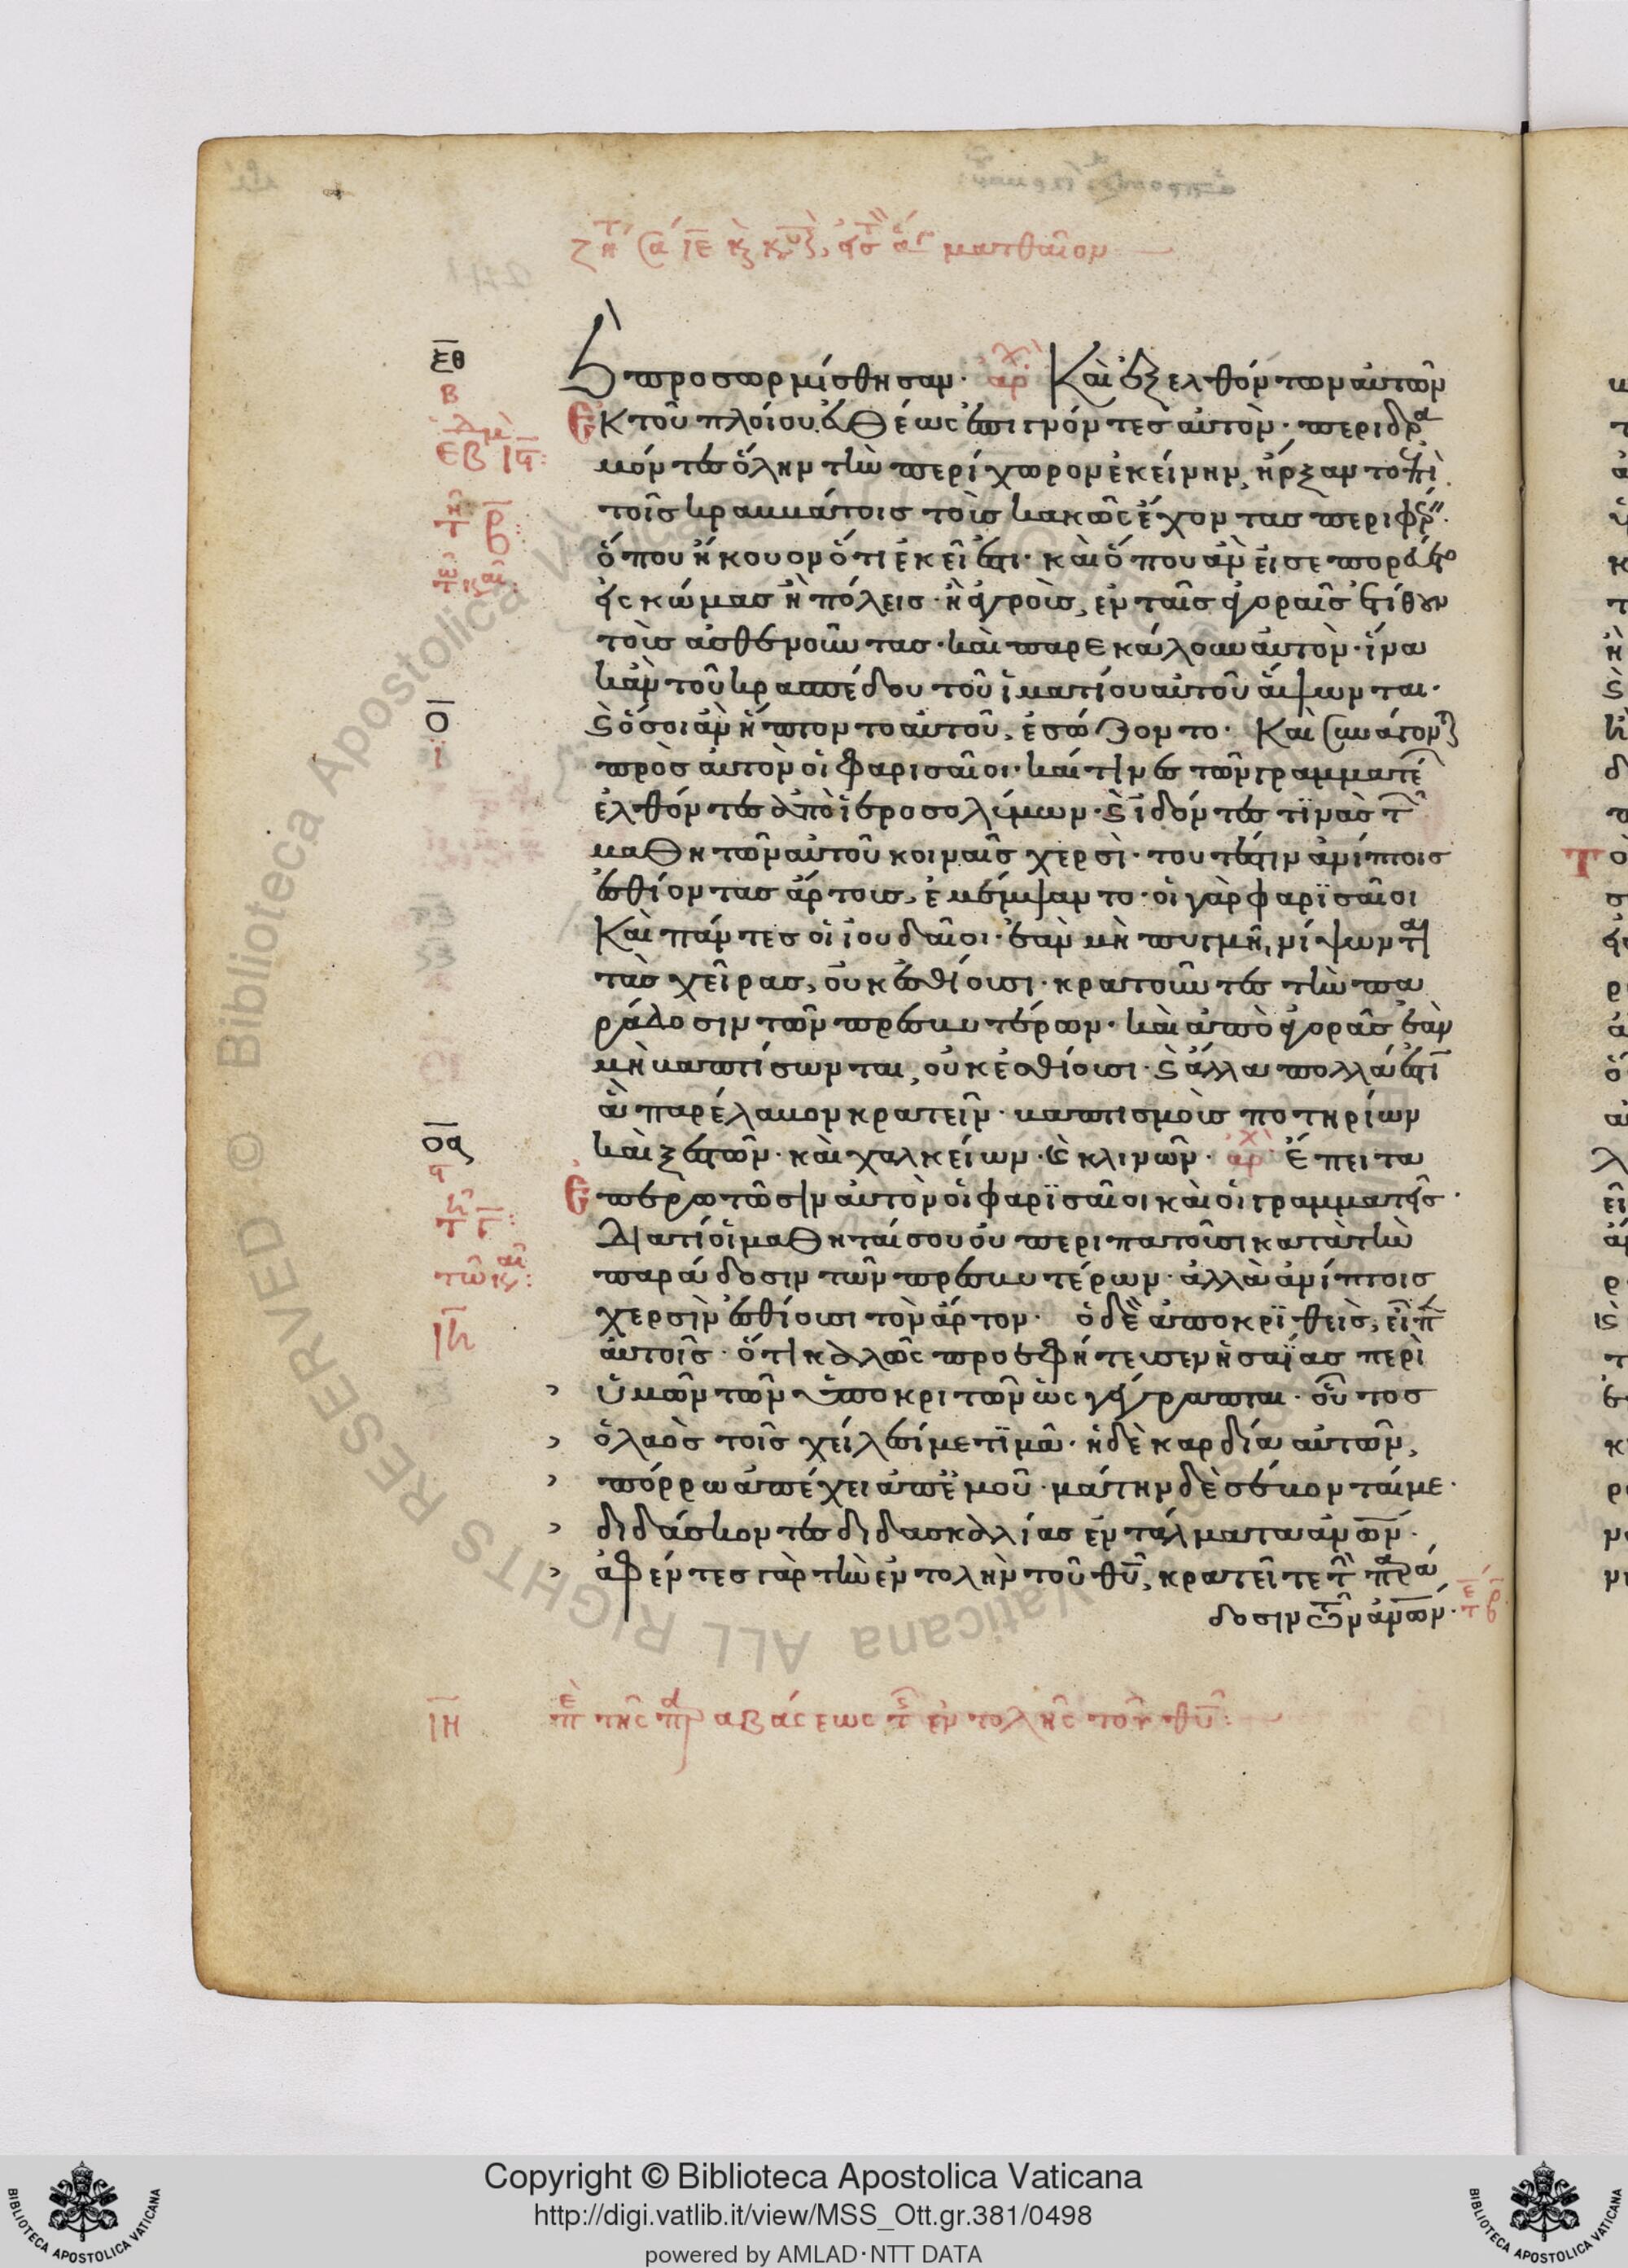 ματθαῖον
ξθ
προσωρμίσθησαν· ἀρχ Καὶ ἐξελθόντων αὐτῶν
ἐκ τοῦ πλοίου. εὐθέως ἐπιγνόντες αὐτὸν· περιδρα
μόντες ὅλην τὴν περίχωρον ἐκείνην, ἤρξαντο ἐπὶ
τοῖς κραββάτοις τοὺς κακῶς ἔχοντας περιφέρ
ὅπου ἤκουον ὅτι ἐκεῖ ἐστι· καὶ ὅπου ἂν εἰσεπορεύετο
εἰς κώμας ἢ πόλεις· ἢ ἀγροὺς, ἐν ταῖς ἀγοραῖς ἐτίθουν
τοὺς ἀσθενοῦντας· καὶ παρεκάλουν αὐτὸν· ἵνα
κἂν τοῦ κρασπέδου τοῦ ἱματίου αὐτοῦ ἅψωνται·
ο
καὶ ὅσοι ἂν ἥπτοντο αὐτοῦ, ἐσώζοντο· Καὶ συνάγοντ
πρὸς αὐτὸν οἱ φαρισαῖοι· καί τινες τῶν γραμματέ
ἐλθόντες ἀπὸ ἱεροσολύμων· καὶ ἰδόντες τινὰς τ
μαθητῶν αὐτοῦ κοιναῖς χερσὶ· τουτέστιν ἀνίπτοις
ἐσθίοντας ἄρτους, ἐμέμψαντο· οἱ γὰρ φαρϊσαῖοι
Καὶ πάντες οἱ ἰουδαῖοι· ἐὰν μὴ πυγμῇ, νίψωνται
τὰς χεῖρας, οὐκ ἐσθίουσι· κρατοῦντες τὴν πα
ράδοσιν τῶν πρεσβυτέρων· καὶ ἀπὸ ἀγορᾶς ἐὰν
μὴ βαπτίσωνται, οὐκ ἐσθίουσι· καὶ ἄλλα πολλά ἐστι
ἃ παρέλαβον κρατεῖν· βαπτισμοὺς ποτηρίων
οα
καὶ ξεστῶν· καὶ χαλκείων· καὶ κλινῶν· ἀρχ Ἔπειτα
ἐπερωτῶσιν αὐτὸν οἱ φαρϊσαῖοι καὶ οἱ γραμματεῖς·
Διατί οἱ μαθηταί σου οὐ περιπατοῦσι κατὰ τὴν
παράδοσιν τῶν πρεσβυτέρων· ἀλλὰ ἀνίπτοις
χερσὶν ἐσθίουσι τὸν ἄρτον· ὁ δὲ ἀποκριθεὶς, εἶπ
ιη
αὐτοῖς· ὅτι καλῶς προεφήτευσεν ἡσαΐας περὶ
ὑμῶν τῶν ὑποκριτῶν ὡς γέγραπται· οὗτος
ὁ λαὸς τοῖς χείλεσί με τιμᾶ· ἡ δὲ καρδία αὐτῶν,
πόρρω ἀπέχει ἀπ' ἐμοῦ· μάτην δὲ σέβονταί με·
διδάσκοντες διδασκαλίας ἐντάλματα ἀνων·
ἀφέντες γὰρ τὴν ἐντολὴν τοῦ θυ, κρατεῖτε τ παρά
δοσιν τῶν ἀνων·
ιη περὶ τῆς παραβάσεως τ ἐντολῆς τοῦ θυ
Copyright © Biblioteca Apostolica Vaticana
http://digi.vatlib.it/view/MSS_Ott.gr.381/0498
powered by AMLAD·NTT DATA
Biblioteca Apostolica Vaticana ALL RIGHTS RESERVED ©
BIBLIOTECA APOSTOLICA VATICANA
BIBLIOTECA APOSTOLICA VATICANA